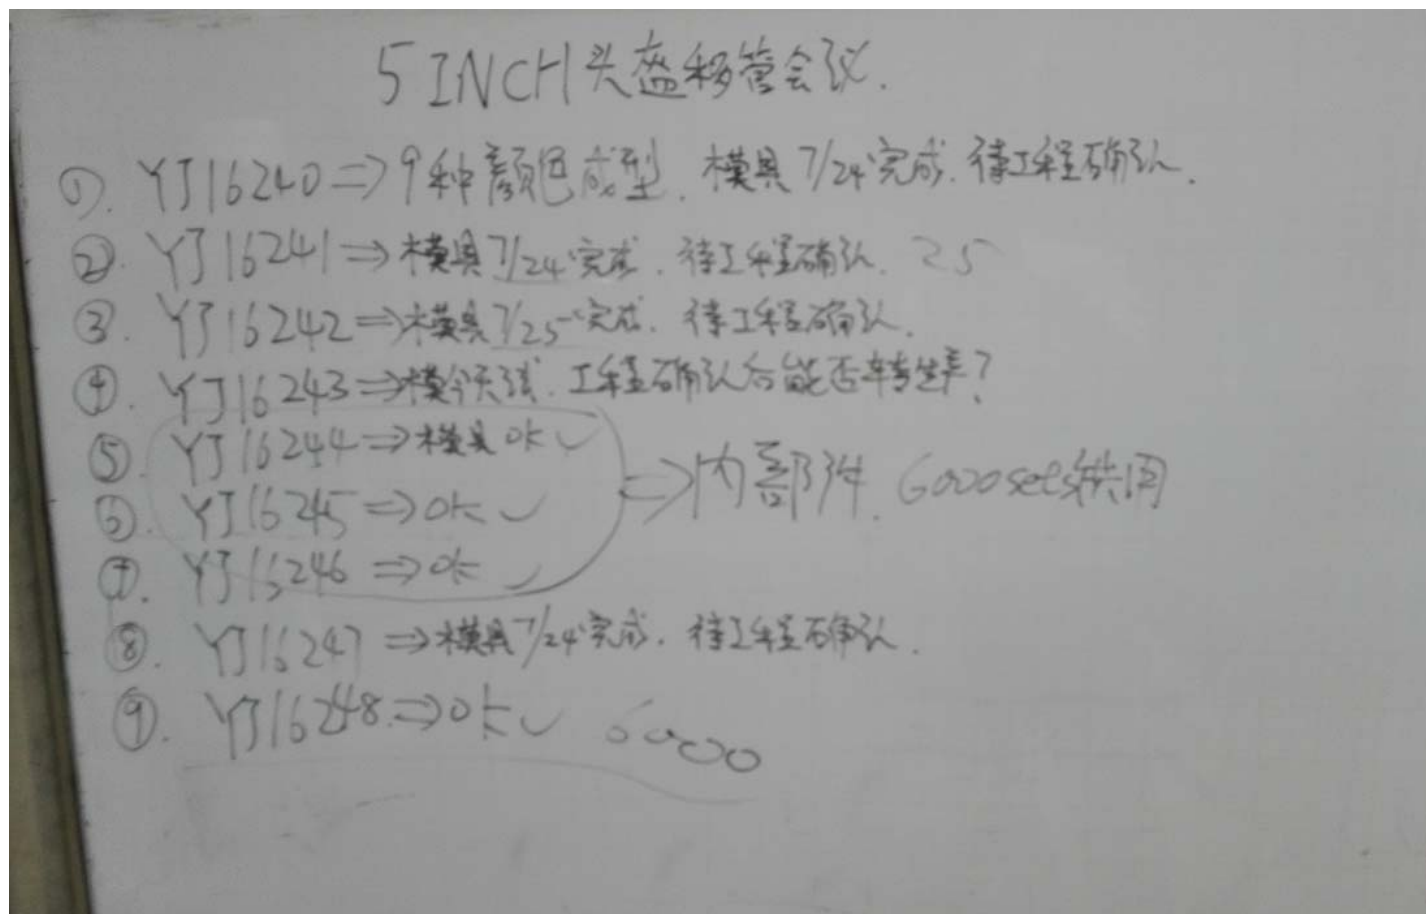 5 INCH 头盔移管会议.
①. YJ16240⇒9种颜色成型. 模具7/24完成. 待工程确认.
②. YJ16241⇒模具7/24完成. 待工程确认. 25
③. YJ16242⇒模具7/25完成. 待工程确认.
④. YJ16243⇒模今天试. 工程确认后能否转生产?
⑤. YJ16244⇒模具OK✓
⑥. YJ16245⇒OK✓
⇒内部件. 6000sets供用
⑦. YJ16246⇒OK✓
⑧. YJ16247⇒模具7/24完成. 待工程确认.
⑨. YJ16248⇒OK✓ 6000